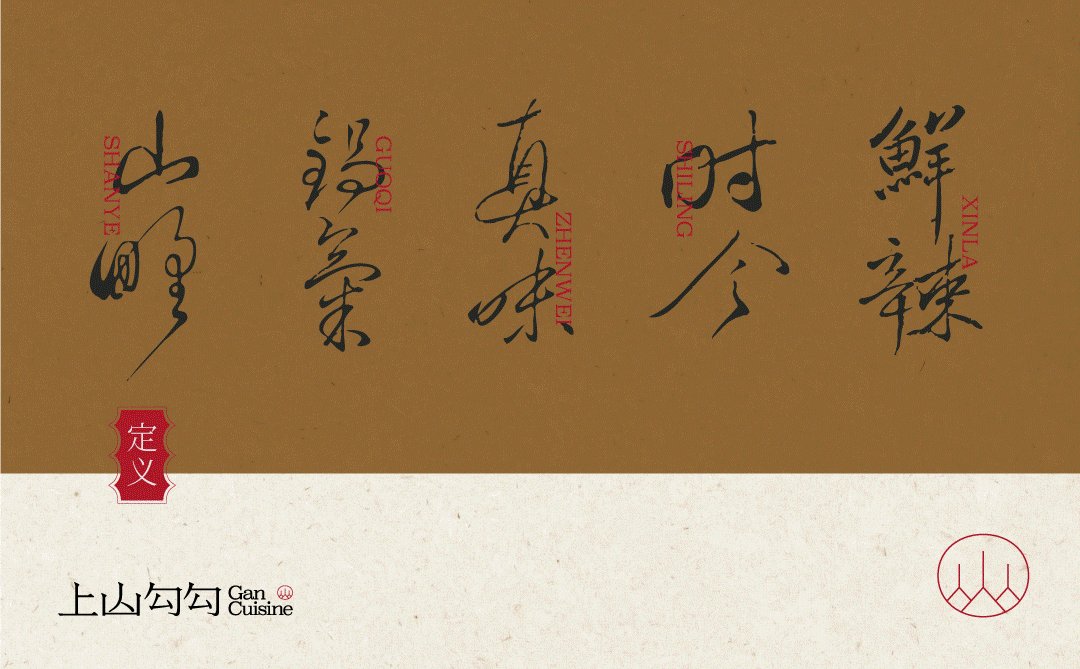 山野
SHANYE
鍋氣
GUOQI
真味
ZHENWEI
时令
SHILING
鮮辣
XINLA
定义
上山勾勾
Gan
Cuisine